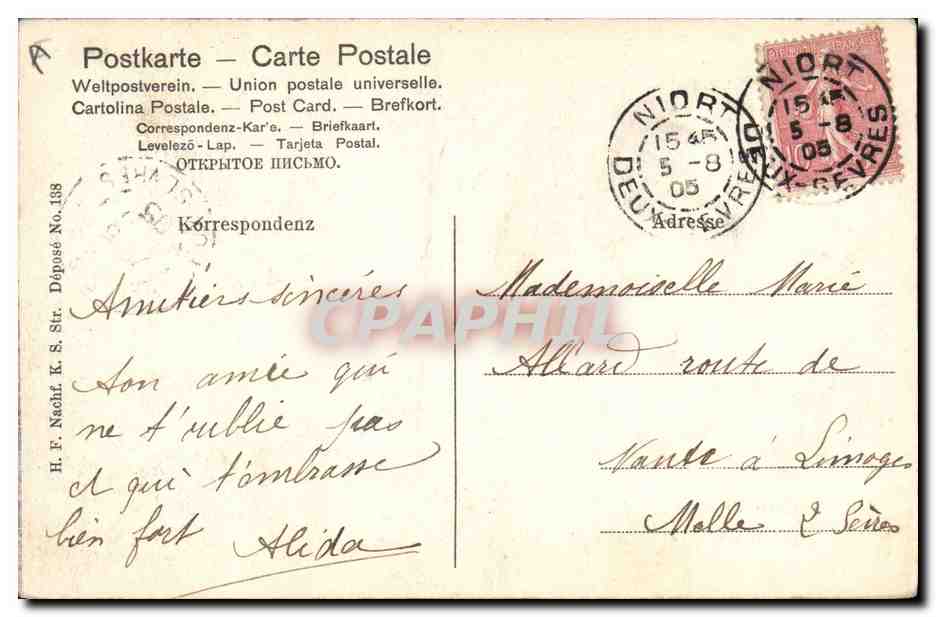 A
Postkarte — Carte Postale
Weltpostverein. — Union postale universelle.
Cartolina Postale. — Post Card. — Brefkort.
Correspondenz-Kar'e. — Briefkaart.
Levelező-Lap. — Tarjeta Postal.
ОТКРЫТОЕ ПИСЬМО.
NIORT
15 45
5 -8
05
DEUX-SÈVRES
NIORT
15 45
5 -8
05
DEUX-SÈVRES
Korrespondenz
Adresse
H. F. Nachf. K. S. Str. Déposé No. 138
Amitiérs sincéres
Son amie qui
ne t'oublie pas
et qui t'embrasse
bien fort Alida
Mademoiselle Marie
Alléard route de
Nante à Limoges
Melle 2 Sèvres
CPAPHIL